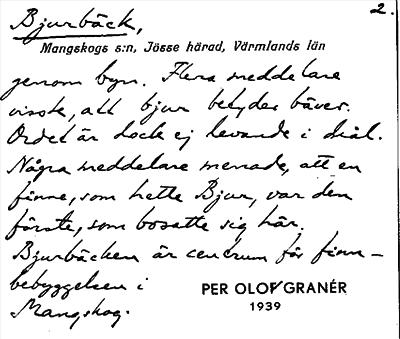 Bjurbäck,
2.
Mangskogs s:n, Jösse härad, Värmlands län
genom byn. Flera meddelare
visste, att bjur betyder bäver.
Ordet är dock ej levande i dial.
Några meddelare menade, att en
finne, som hette Bjur, var den
förste, som bosatte sig här.
Bjurbäcken är centrum för finn-
bebyggelsen i
Mangskog.
PER OLOF GRANÉR
1939